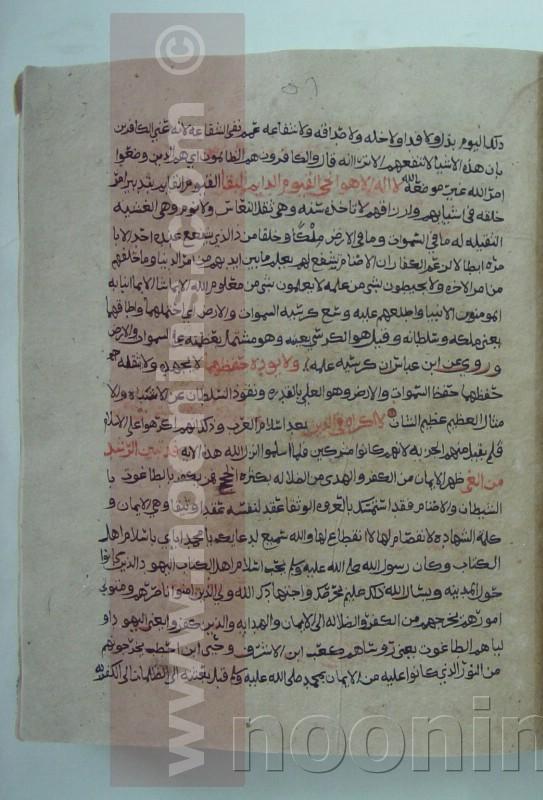 ذلك اليوم بدا ولا فدا ولا خله ولا صداقه ولا شفاعه عمم نفى الشفاعه لانه عنى الكافرين
بان هذه الاشيا لا تنفعهم الا ترى انه قال والكافرون هم الظالمون اى هم الذين وضعوا
امر الله غير موضعه الله لا اله الا هو الحى القيوم الدايم البقا القيوم القايم بتدبير امر
خلقه فى انشايهم وارزاقهم لا تاخذه سنه وهى ثقل النعاس ولا نوم وهى الغشيه
الثقيله له ما فى السموات وما فى الارض ملكا وخلقا من ذا الذى يشفع عنده احد الا با
مره ابطالا لزعم الكفار ان الاصنام تشفع لهم يعلم ما بين ايديهم من امر الدنيا وما خلفهم
من امر الاخره ولا يحيطون بشى من علمه لا يعلمون شى من معلوم الله الا بما شا الا بما انبا به
الانبيا واطلعهم عليه وسع كرسيه السموات والارض اى احتملها واطاقها
يعنى ملكه وسلطانه وقيل هو الكرسى بعينه وهو مشتمل بعظمته على السموات والارض
وروى عن ابن عباس ان كرسيه علمه ولا يوده حفظهما لا يجهده ولا يثقله
حفظهما حفظ السموات والارض وهو العلى بالقدره ونفوذ السلطان عن الاشباه والا
مثال العظيم عظيم الشان لا اكراه فى الدين بعد اسلام العرب وذلك انهم اكرهوا على الاسلام
فلم يقبل منهم الجزيه لانهم كانوا مشركين فلما اسلموا انزل الله هذه الايه قد تبين الرشد
من الغى ظهر الايمان من الكفر والهدى من الضلاله بكثره الحجج فمن يكفر بالطاغوت با
لشيطان والاصنام فقد استمسك بالعروه الوثقى عقد لنفسه عقدا وثيقا وهى الايمان و
كلمة الشهاده لا انفصام لها لا انقطاع لها والله سميع لدعايك يا محمد اياى باسلام اهل
الكتاب وكان رسول الله صلى الله عليه وسلم يحب اسلام اهل الكتاب اليهود الذين كانوا
حول المدينه ويسال الله ذلك عليم بحرصك واجتهادك الله ولى الذين امنوا ناصرهم ومتولى
امورهم يخرجهم من الكفر والضلاله الى الايمان والهدايه والذين كفروا يعنى اليهود او
لياهم الطاغوت يعنى روساهم كعب ابن الاشرف وحيى ابن اخطب يخرجونهم
من النور الذى كانوا عليه من الايمان بمحمد صلى الله عليه وسلم قبل بعثته الى الظلمات الى الكفر به
www.noorinsr.com ©
noorin